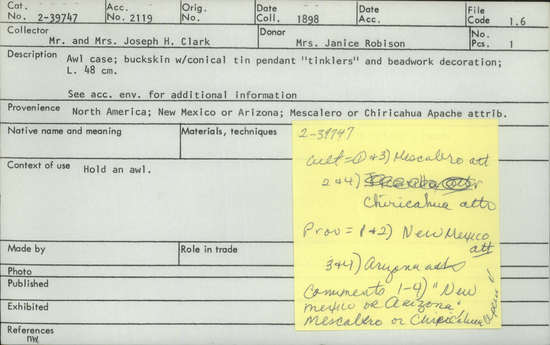 Cat. No. 2-39747 Acc. No. 2119 Orig. No. Date Coll. 1898 Date Acc. File Code 1.6
Collector Mr. and Mrs. Joseph H. Clark Donor Mrs. Janice Robison No. Pcs. 1
Description Awl case; buckskin w/conical tin pendant "tinklers" and beadwork decoration;
L. 48 cm.
See acc. env. for additional information
Provenience North America; New Mexico or Arizona; Mescalero or Chiricahua Apache attrib.
Native name and meaning Materials, techniques
Context of use Hold an awl.
Made by Role in trade
Photo
Published
Exhibited
References
nw
2-39747
Cult = 1 & 3) Mescalero att
2 & 4)
Chiricahua attr
Prov = 1 & 2) New Mexico
att
3 & 4) Arizona att
Comments 1-4) "New
Mexico or Arizona"
Mescalero or Chiricahua Apache